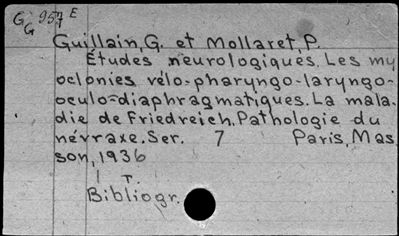 G 957 E
G
Guillain, G. et Mollaret, P.
Études neurologiques. Les my
oclonies vélo-pharyngo-laryngo-
oculo-diaphragmatiques. La mala-
die de Friedreich. Pathologie du
névraxe. Ser. 7 Paris, Mas
son, 1936
1 T.
Bibliogr.